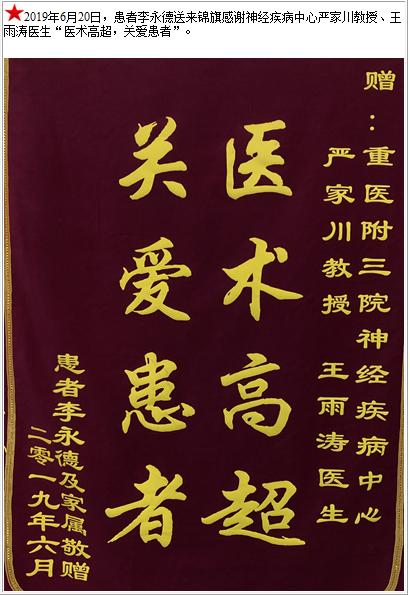 2019年6月20日，患者李永德送来锦旗感谢神经疾病中心严家川教授、王
雨涛医生“医术高超，关爱患者”。
赠：
重医附三院神经疾病中心
严家川教授 王雨涛医生
医术高超
关爱患者
患者李永德及家属敬赠
二零一九年六月